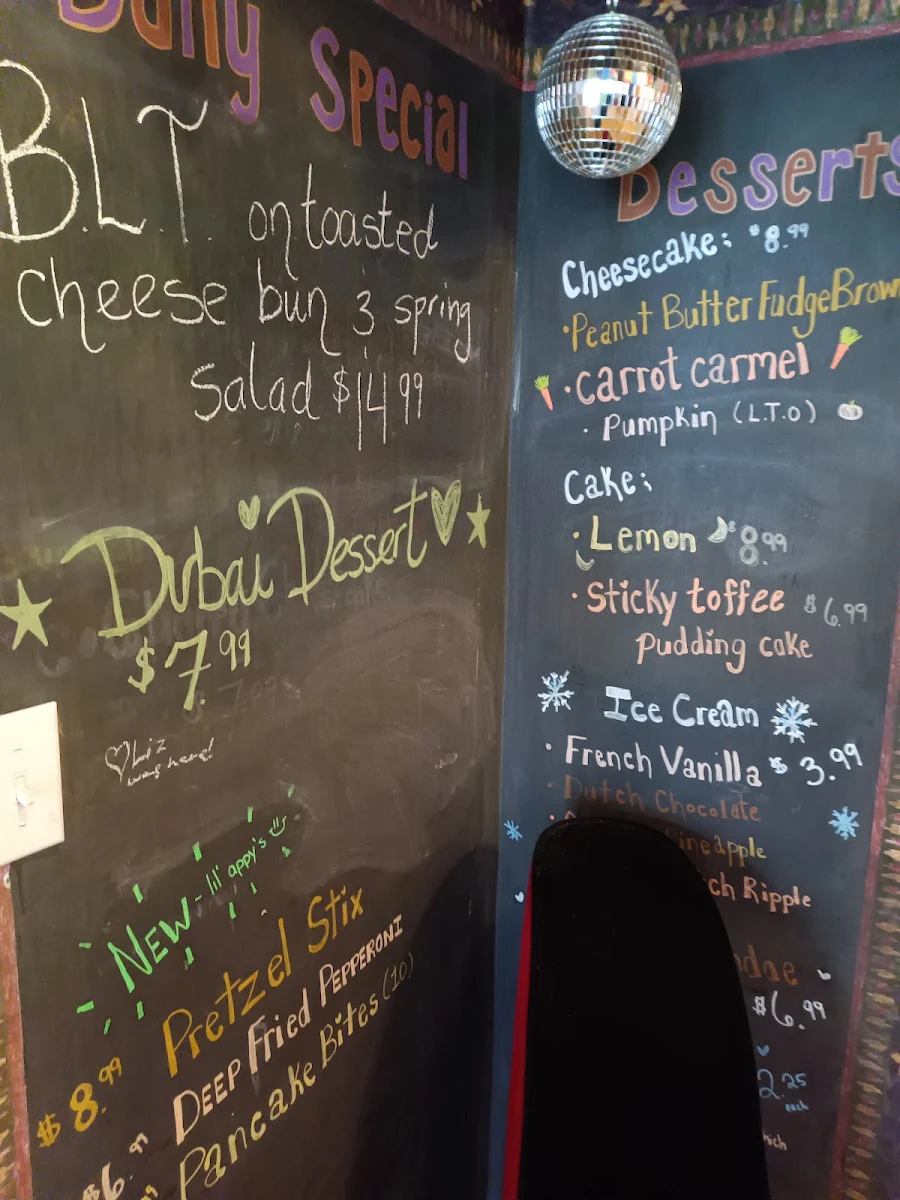 Daily Special
B.L.T. on toasted
cheese bun & spring
salad $14.99
Dubai Dessert
$7.99
Liz
was here!
NEW - lil' appy's
$8.99 Pretzel Stix
$6. DEEP Fried PEPPERONI
Pancake Bites (10)
Desserts
Cheesecake: $8.99
· Peanut Butter Fudge Brow
· carrot carmel
· Pumpkin (L.T.O)
Cake:
· Lemon $8.99
· Sticky toffee $6.99
pudding cake
Ice Cream
· French Vanilla $3.99
· Dutch Chocolate
ineapple
ch Ripple
dae
$6.99
2.25
each